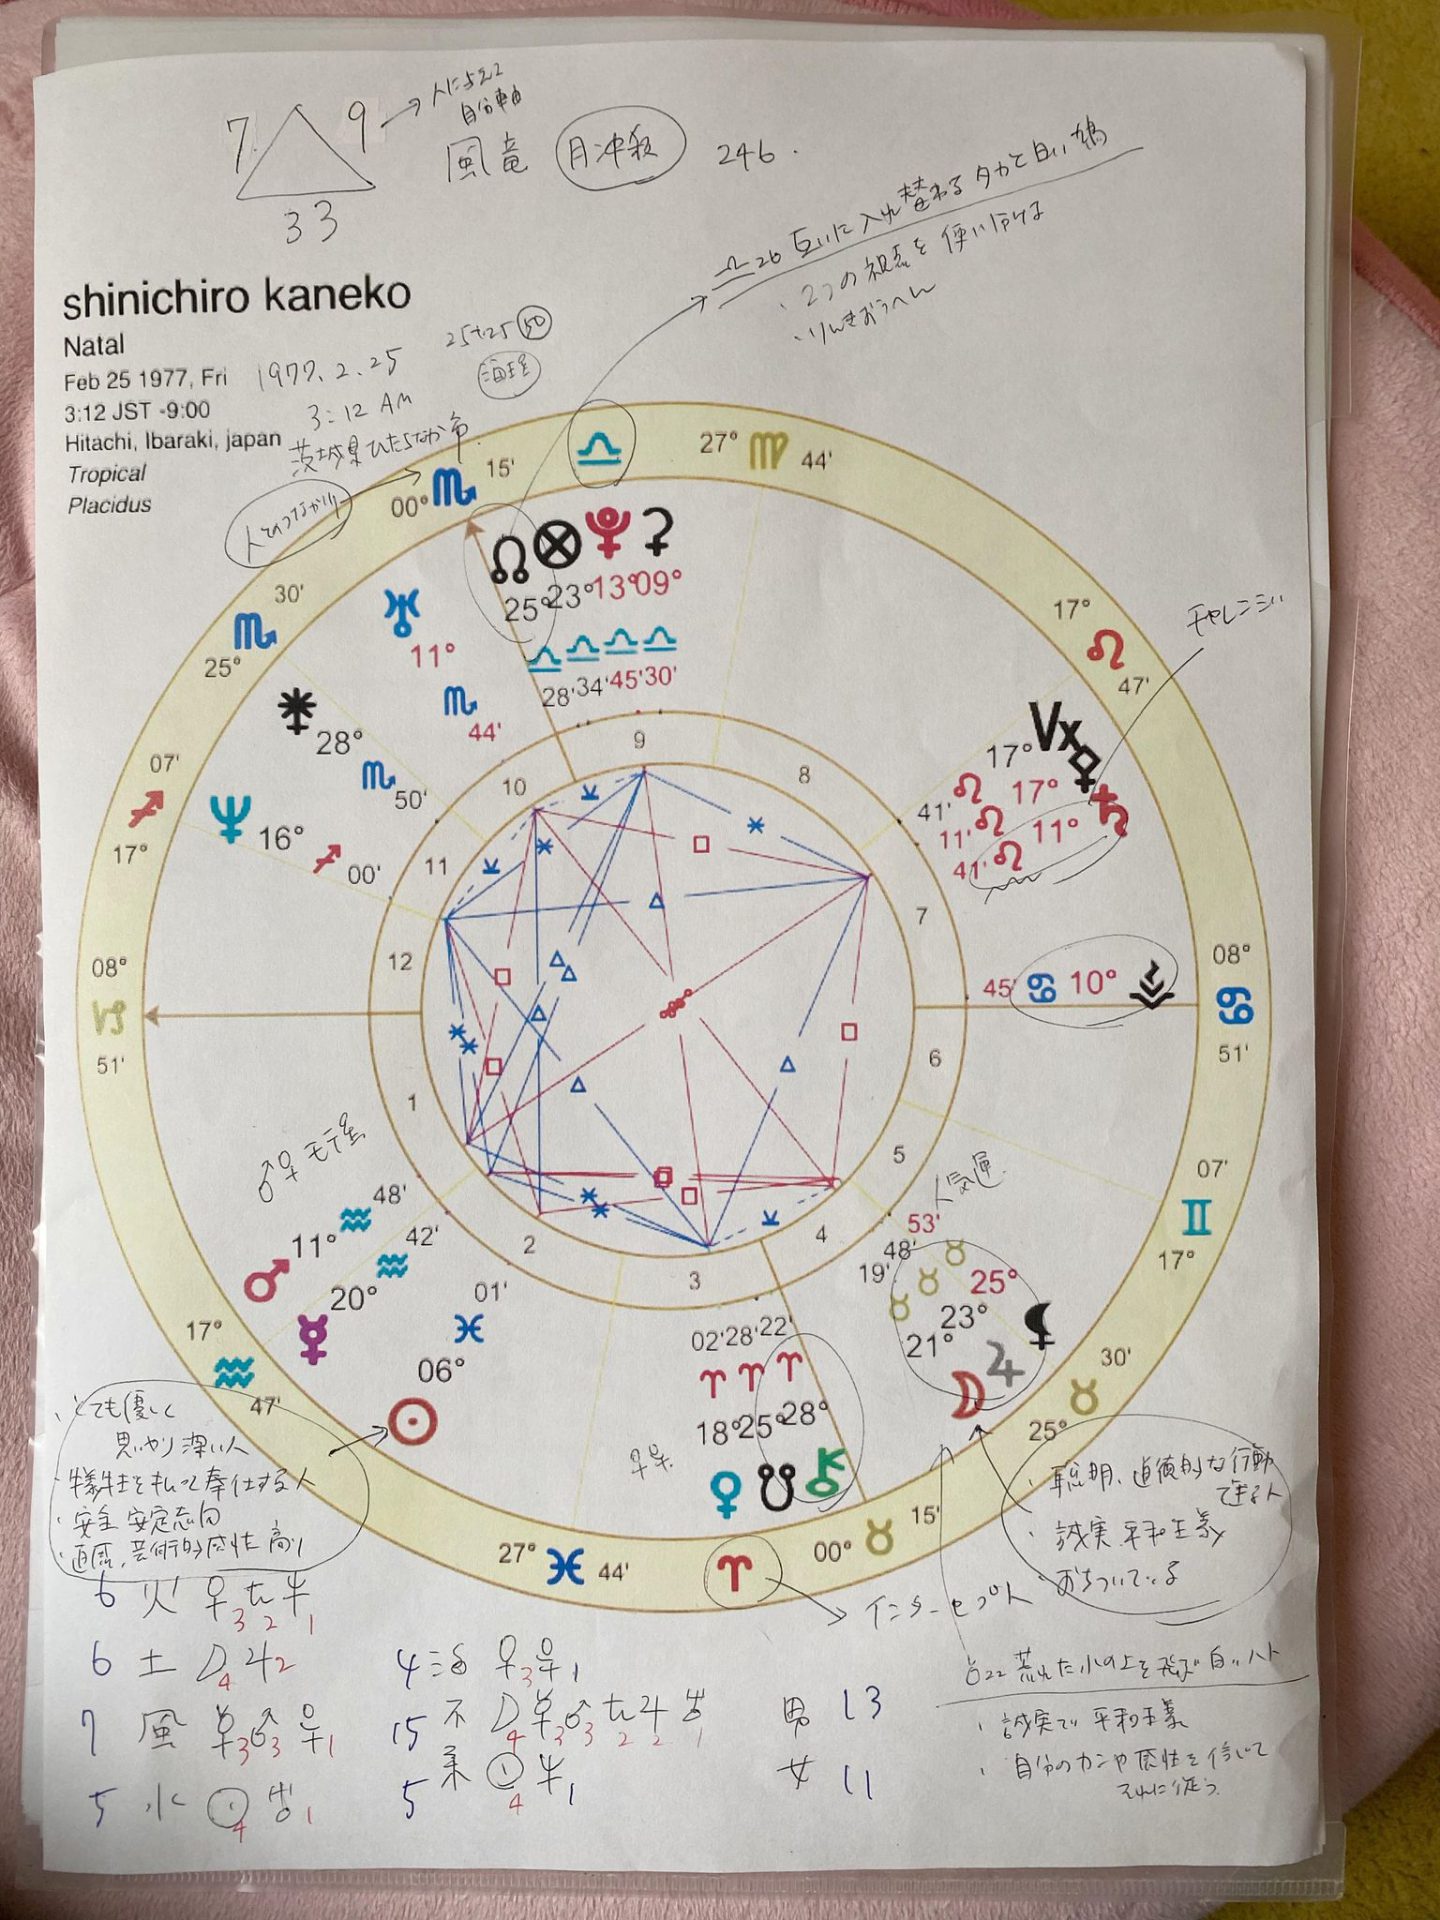 7 9 → 人に与える
自分軸
33
風竜 月冲殺 246.
♎26 互いに入れ替わるタカと白い鳩
・2つの視点を使い分ける
・りんきおうへん
shinichiro kaneko
Natal
Feb 25 1977, Fri
1977. 2. 25
25+25 50
3:12 JST -9:00
3:12 AM
Hitachi, Ibaraki, japan
茨城県ひたちなか市
Tropical
Placidus
人とのつながり
00° ♏ 15'
♎
27° ♍ 44'
30' ♏ 25°
♅ 11° ♏ 44'
☊ 25° ♎ 28'
⊗ 23° ♎ 34'
13° ♎ 45'
⚳ 09° ♎ 30'
17° ♌ 47'
チャレンジ
⚵ 28° ♏ 50'
Vx 17° ♌ 41'
⚴ 17° ♌ 11'
♄ 11° ♌ 41'
07' ♐ 17°
♆ 16° ♐ 00'
08° ♑ 51'
45' ♋ 10°
08° ♋ 51'
9
10
8
11
7
12
6
1
5
2
4
3
♂♀モテ星
人気運
♂ 11° ♒ 48'
☿ 20° ♒ 42'
☉ 06° ♓ 01'
17° ♒ 47'
♀ 18° ♈ 02'
☋ 25° ♈ 28'
⚷ 28° ♈ 22'
☽ 21° ♉ 19'
♃ 23° ♉ 48'
⚸ 25° ♉ 53'
07' ♊ 17°
30' ♉ 25°
27° ♓ 44'
♈ → インターセプト
00° ♉ 15'
・とても優しく
思いやり深い人
・犠牲を払って奉仕する人
・安全 安定志向
・直感、芸術的感性高い
・聡明、道徳的な行動
できる人
・誠実 平和主義
・おちついている
6 火 ♀3 2 1
6 土 ☽4 ♃2
7 風 3 ♂3 1
5 水 ☉4 1
4 活 ♀3 1
15 不 ☽4 3 ♂3 2 ♃2 1
5 柔 ☉4 1
男 13
女 11
♉22 荒れた水の上を飛ぶ白いハト
・誠実で平和主義
・自分のカンや感性を信じて
それに従う